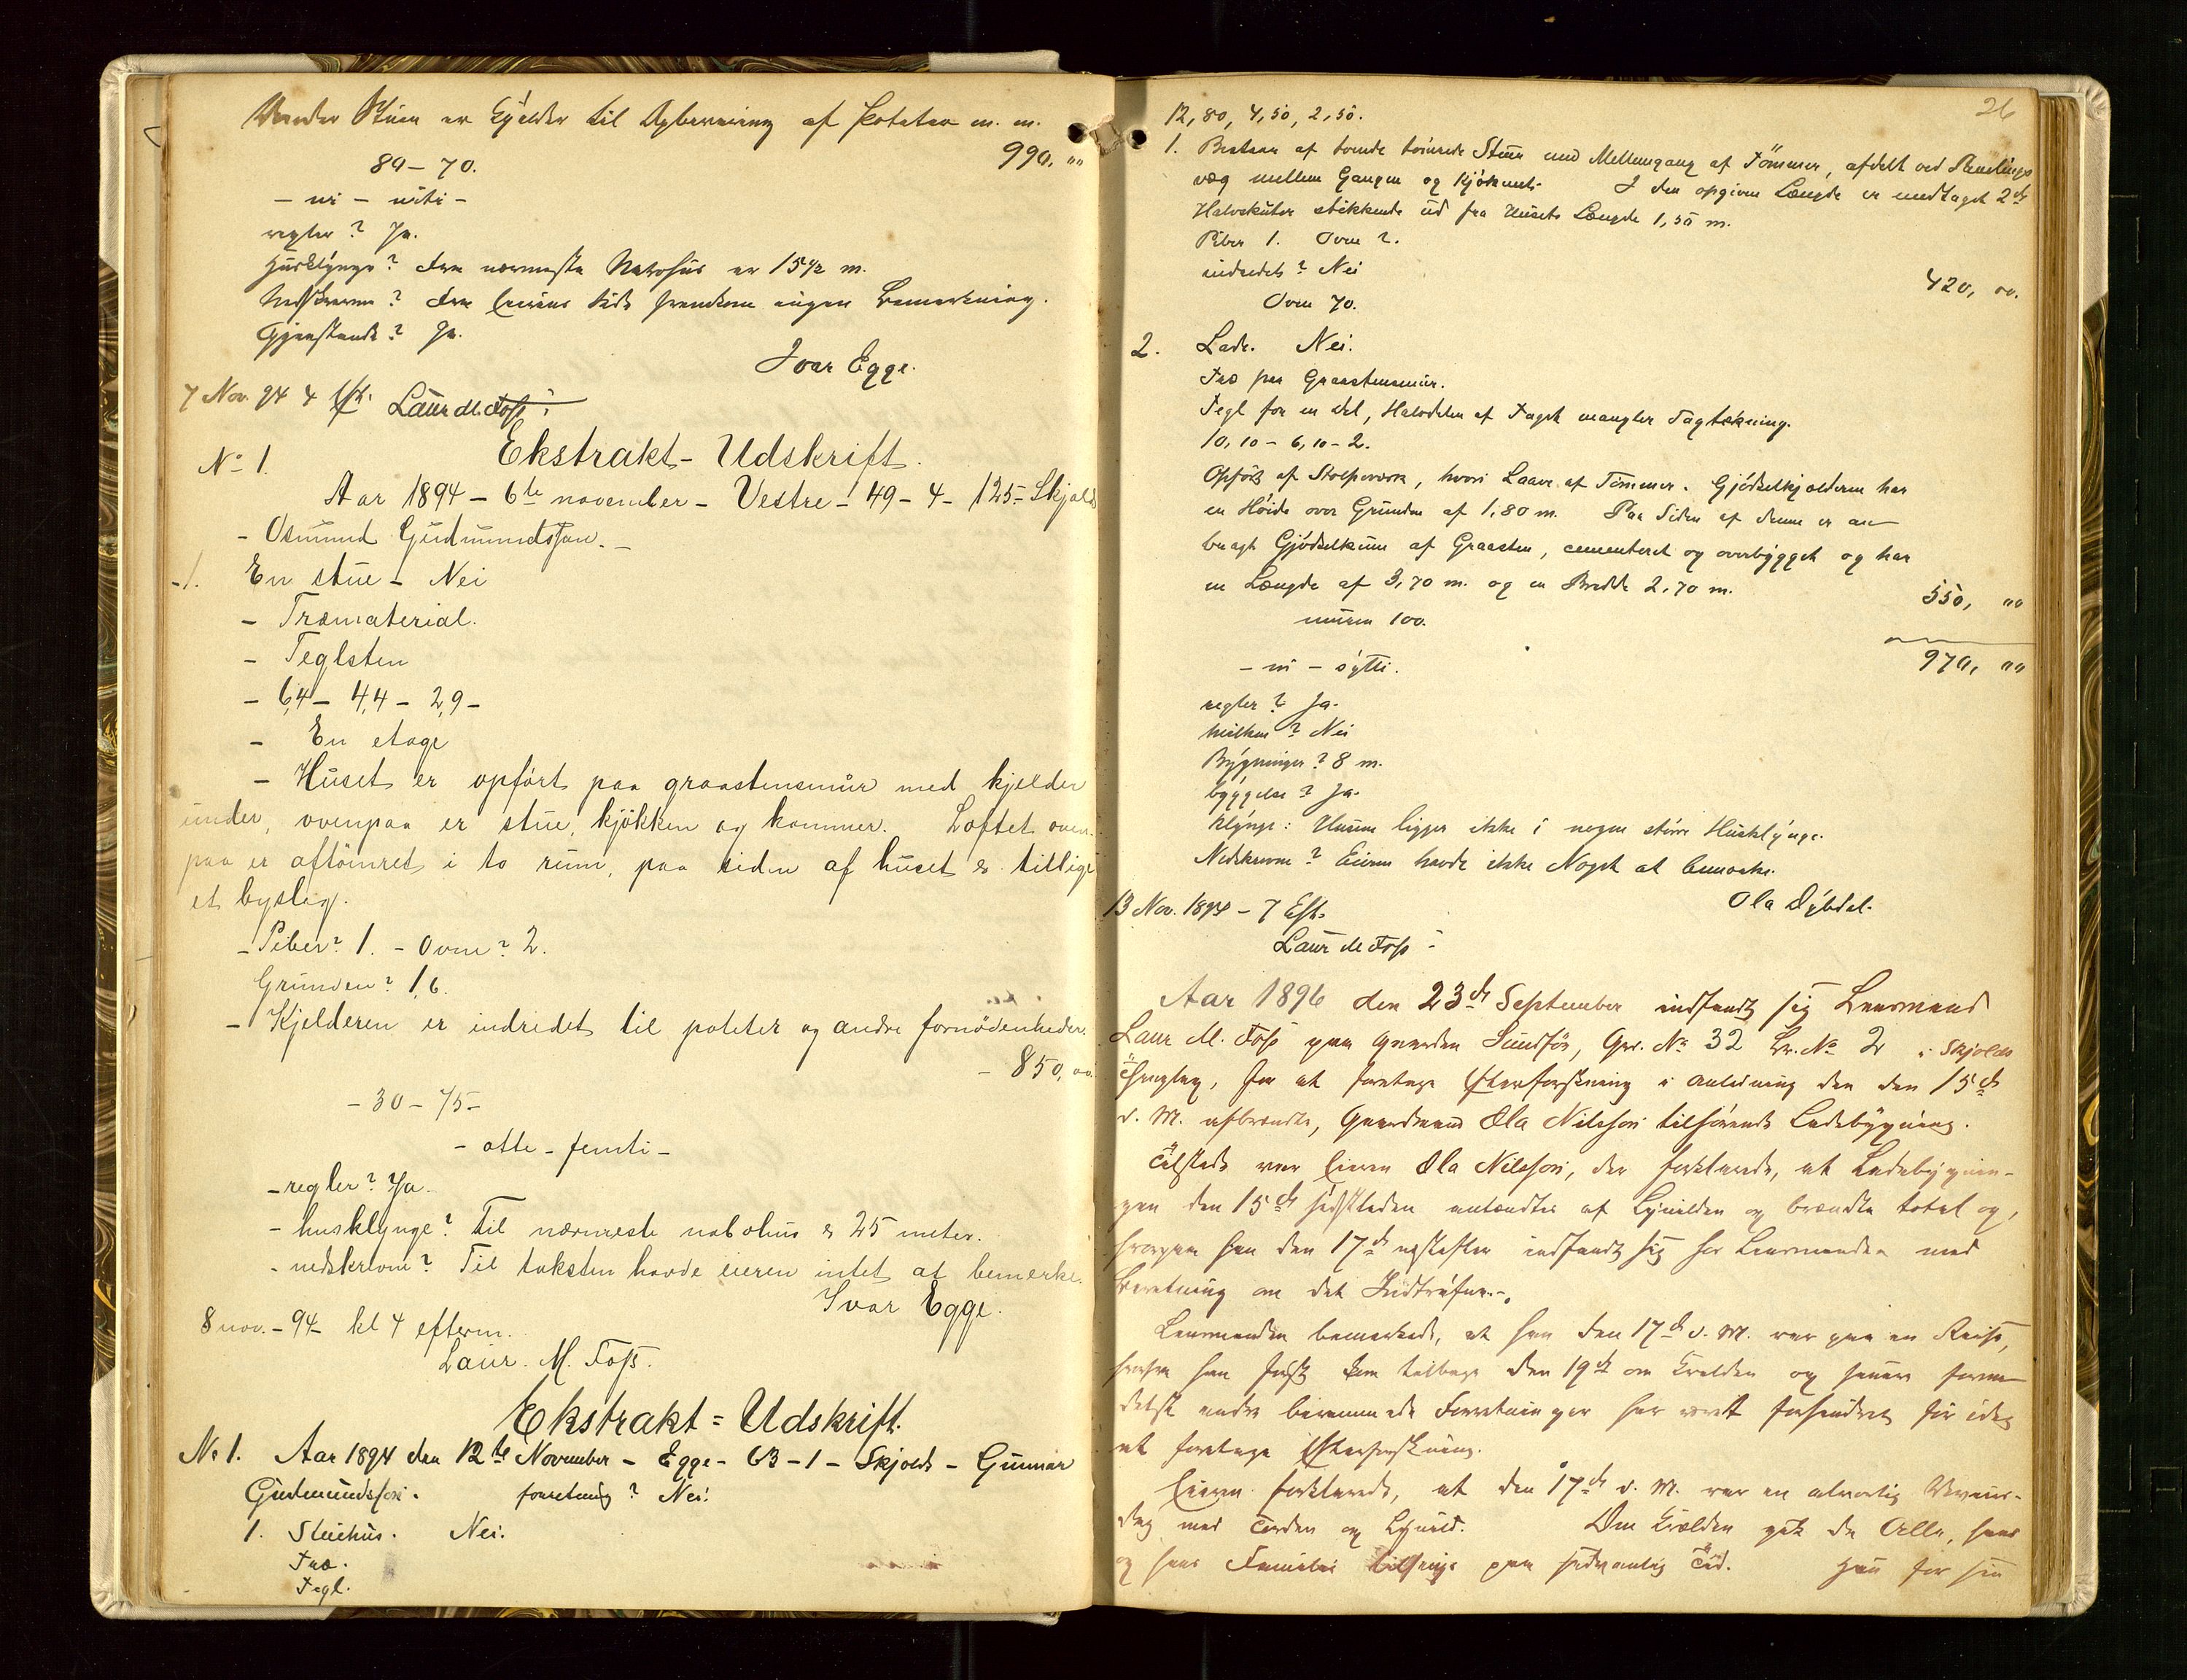 Under Stuen er Kjelder til Opbevaring af Poteter m. m.
990, "
89 – 70.
– ni – niti –
regler? Ja.
Husklynge? Fra nærmeste Nabohus er 15 1/2 m.
Nedskrevne? Fra Eierens Side fremkom ingen Bemærkning.
Gjenstande? Ja.
Ivar Egge.
7 Nov. 94 4 Eft. Laur M. Foss
Ekstrakt-Udskrift.
No 1.
Aar 1894 – 6te november – Vestre – 49 – 4 – 125 – Skjold
– Osmund Gudmundsson. –
– 1. En stue – Nei
– Træmaterial.
– Teglsten
– 6,4 – 4,4 – 2,9 –
– En etage
– Huset er opført paa graastensmur med kjelder
under, ovenpaa er stue, kjøkken og kammer. Loftet oven-
paa er aftømret i to rum, paa siden af huset er tillige
et byslag.
– Piber? 1. – Ovne? 2.
Grunden? 1,6.
– Kjelderen er indredet til poteter og andre fornødenheder.
– 850,00
– 30 – 75 –
– otte – femti –
– regler? Ja.
– husklynge? Til nærmeste nabohus er 25 meter.
– nedskrevne? Til taksten havde eieren intet at bemerke.
Ivar Egge.
8 nov. – 94 kl 4 efterm.
Laur. M. Foss.
Ekstrakt = Udskrift.
No 1. Aar 1894 den 12te November – Egge – 63 – 1 – Skjold – Gunnar
Gudmundsson. forretning? Nei.
1. Stuehus. Nei.
Træ.
Tegl.
26
12,80, 4,50, 2,50.
1. Bestaar af tvende tømrede Stuer med Mellemgang af Tømmer, afdelt ved Panelings
væg mellem Gangen og Kjøkkenet. I den opgivne Længde er medtaget 2de
Halvskuter stikkende ud fra Husets Længde 1,50 m.
Piber 1. Ovne 2.
indredet? Nei
420, 00.
Ovne 70.
2. Lade. Nei.
Træ paa Graastensmur.
Tegl for en del, Halvdelen af Taget mangler Tagtækning.
10,10 – 6,10 – 2.
Opført af Stolpeværk, hvori Laave af Tømmer. Gjødselkjelderen har
en Høide over Grunden af 1,80 m. Paa Siden af denne er an-
bragt Gjødselkum af Graasten, cementeret og overbygget og har
en Længde af 3,70 m. og en Bredde 2,70 m.
550, "
muren 100.
970, "
– ni – sytti.
regler? Ja.
hvilken? Nei
Bygninger? 8 m.
byggelse? Ja.
klynge: Husene ligger ikke i nogen større Husklynge.
Nedskrevne? Eieren havde ikke Noget at bemærke.
Ola Dybdal.
13 Nov. 1894 – 7 Eft.
Laur M Foss
Aar 1896 den 23de September indfandt sig Lensmand
Laur M. Foss paa Gaarden Sundfør, Gr. No 32 Br. No 2 i Skjolds
Thinglag, for at foretage Efterforskning i Anledning den den 15de
d. M. afbrændte, Gaardmand Ola Nilsson tilhørende Ladebygning.
Tilstede var Eieren Ola Nilsson, der forklarede, at Ladebygnin-
gen den 15de sidstleden antændtes af Lynilden og brændte totalt op,
hvorpaa han den 17de næstefter indfandt sig hos Lensmanden med
Beretning om det Indtrufne.
Lensmanden bemærkede, at han den 17de d. M. var paa en Reise,
hvorfra han først kom tilbage den 19de om Kvelden og senere forme-
delst andre berammede Forretninger har været forhindret før idag
at foretage Efterforskning.
Eieren forklarede, at den 17de d. M. var en alvorlig Uveirs-
dag med Torden og Lynild. Om Kvelden gik de Alle, han
og hans Familie tilsengs paa sedvanlig Tid. Han for sin